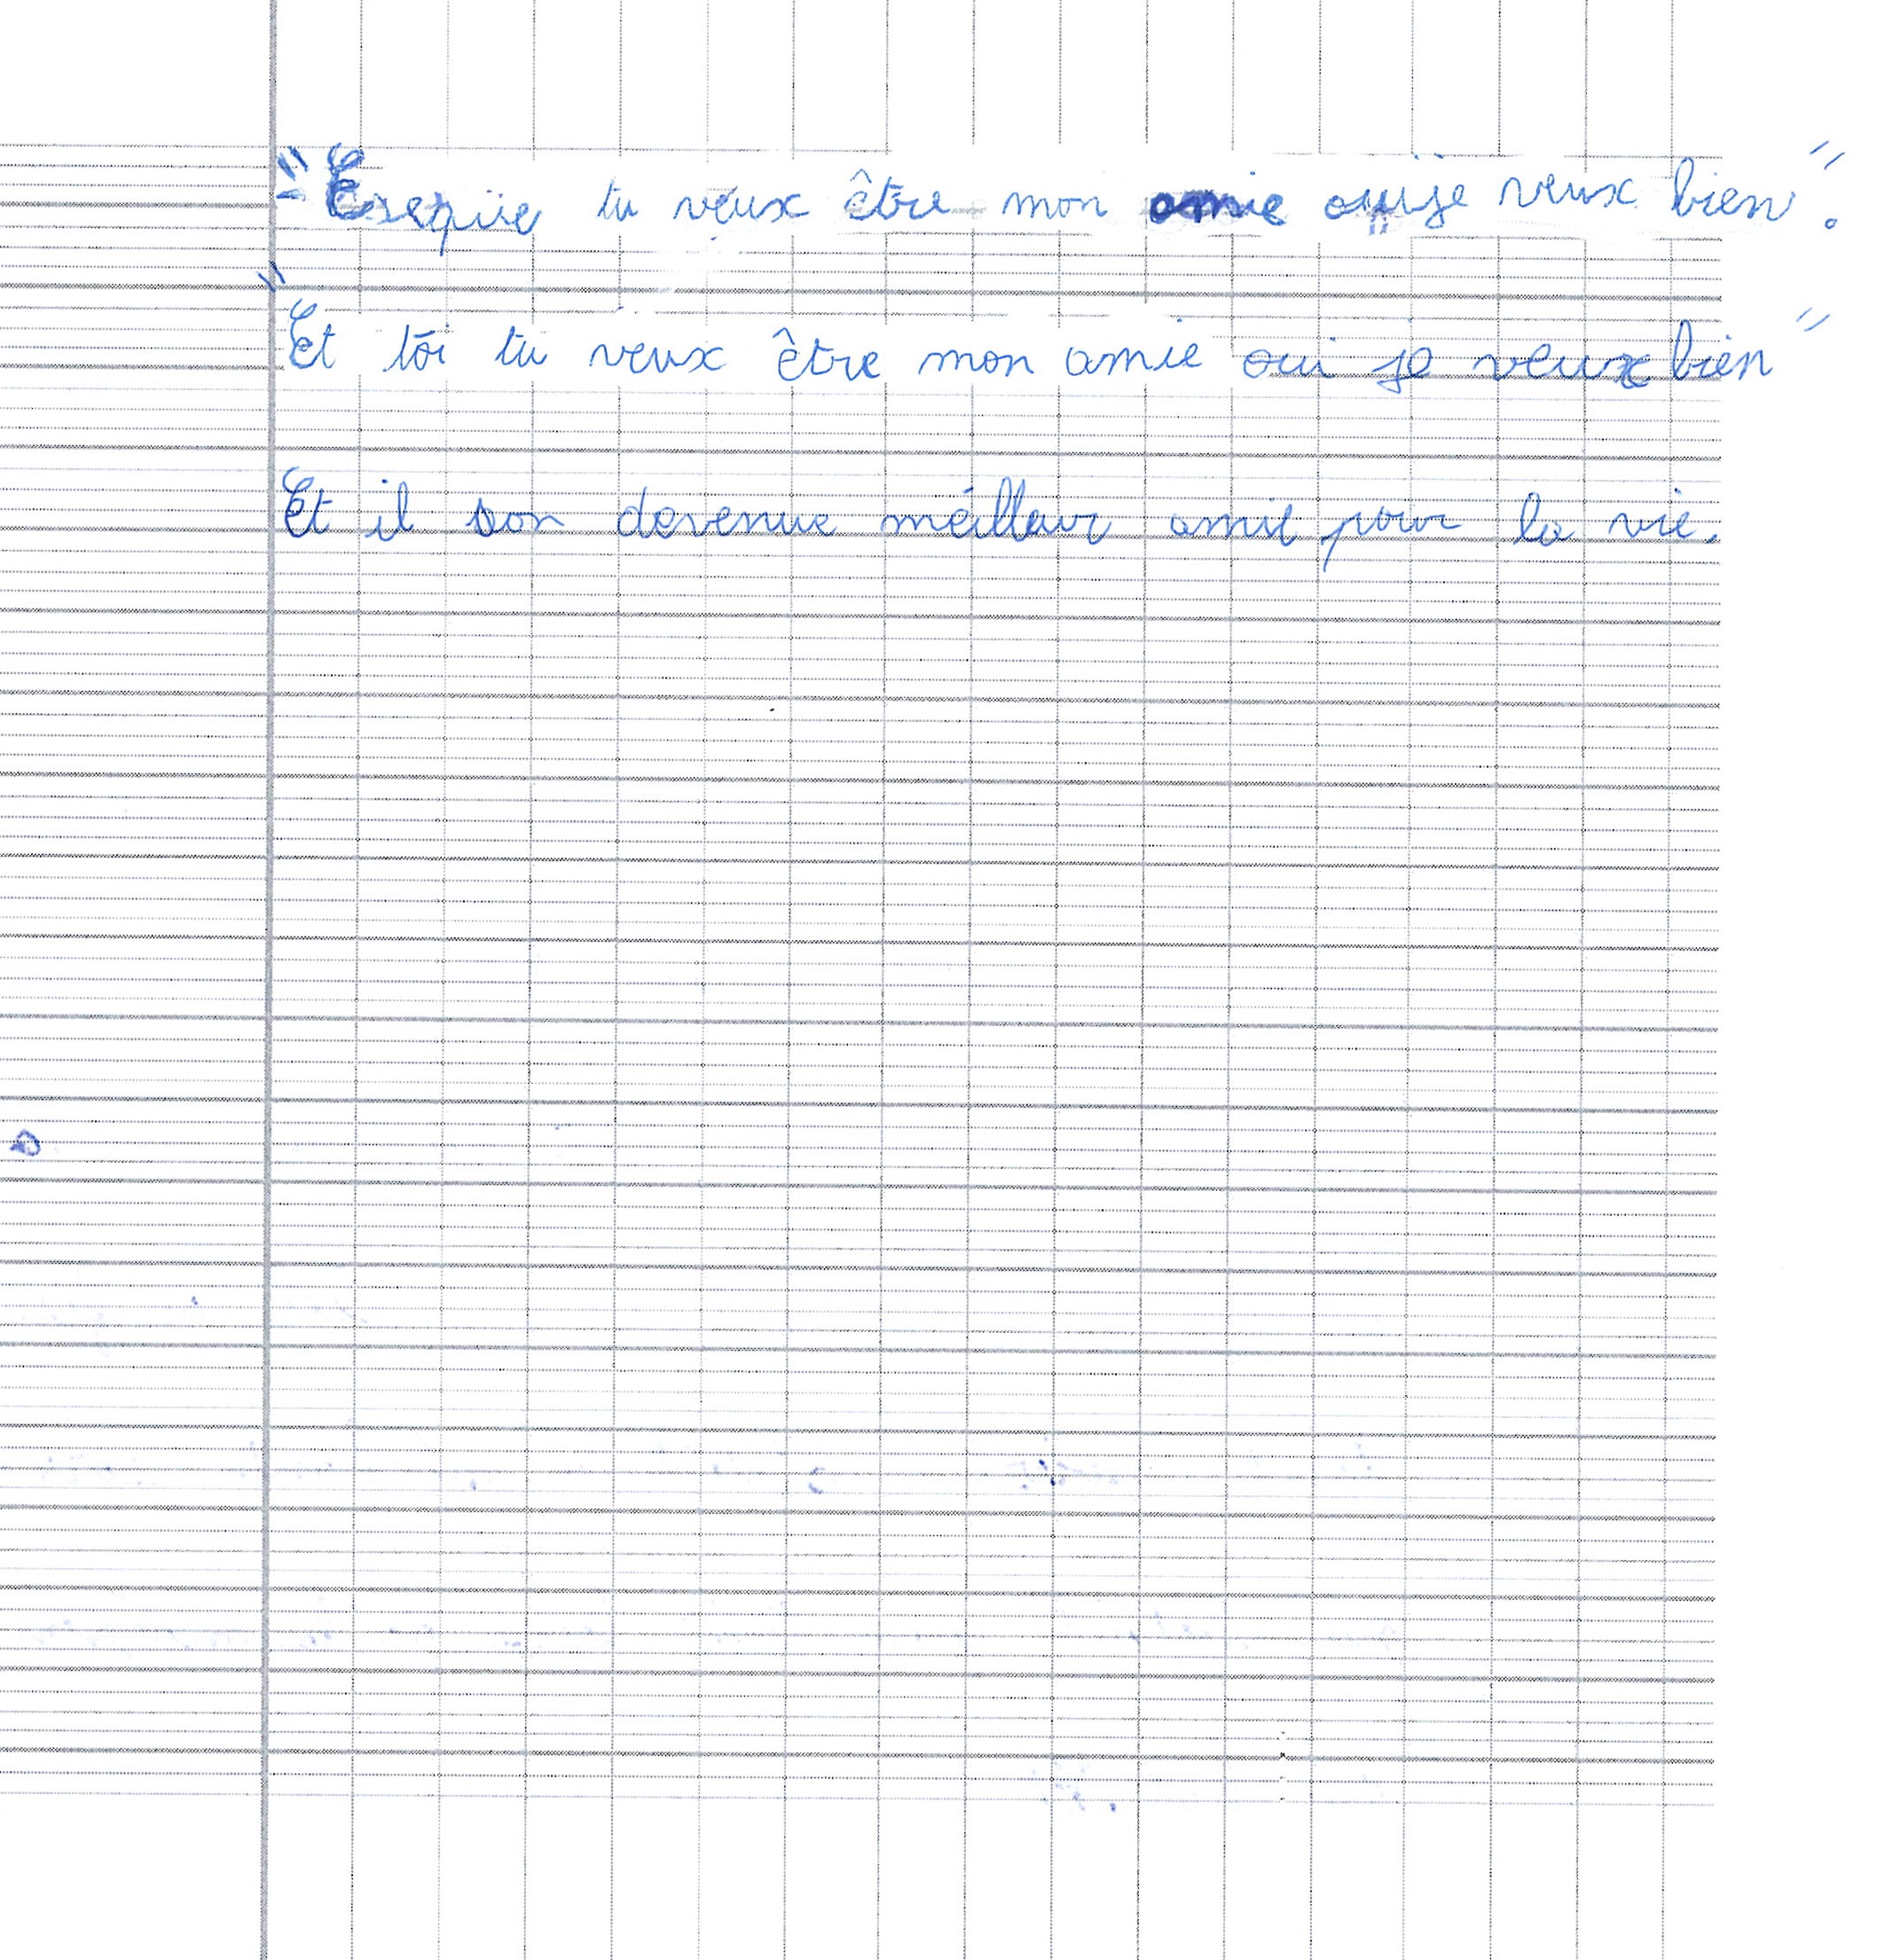 "Esepiie tu veux être mon amie oui je veux bien".
"Et toi tu veux être mon amie oui je veux bien"
Et il son devenue méilleur amie pour la vie.